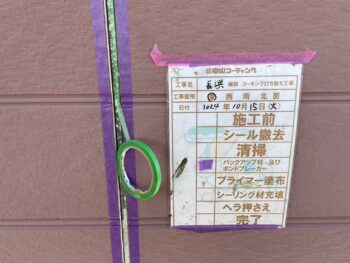 中山コーティング
工事名 長濱 様邸 コーキング打ち替え工事
工事箇所 東 西 南 北 面
日付 2024 年 10 月 15 日 (火)
施工前
シール撤去
清掃
バックアップ材 及び
ボンドブレーカー
プライマー塗布
シーリング材充填
ヘラ押さえ
完了